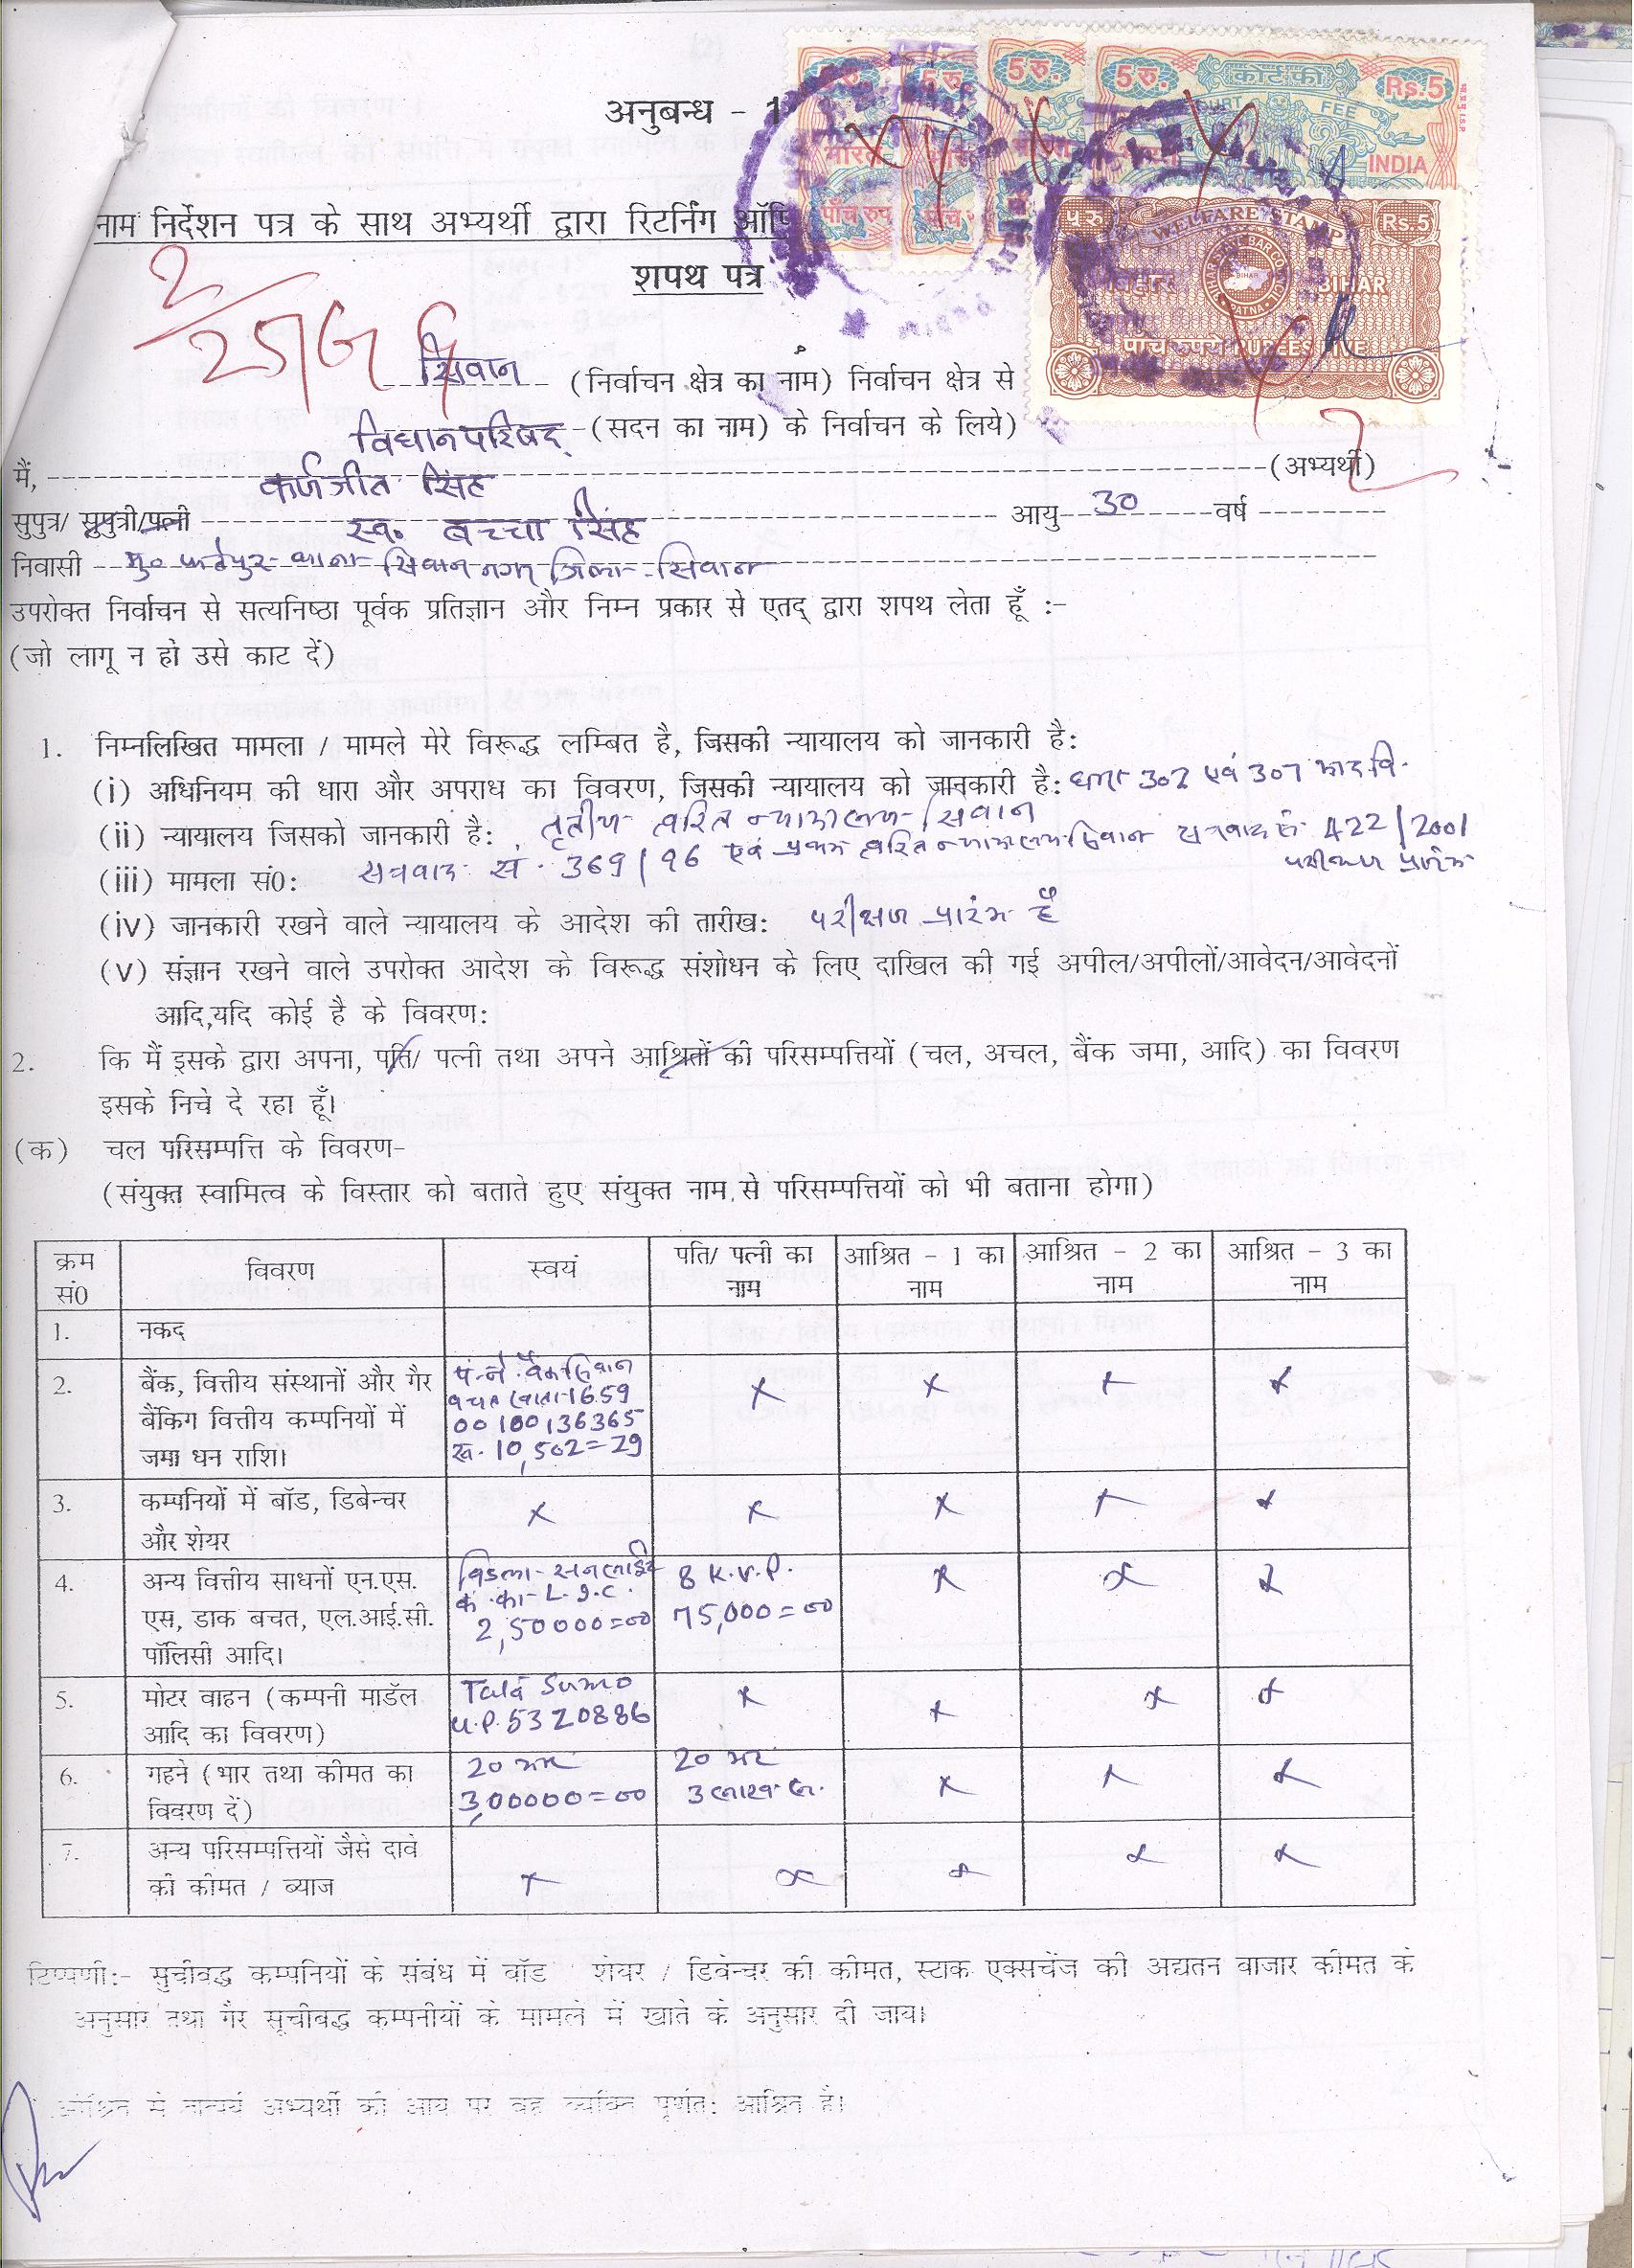 अनुबन्ध - 1
5रु. 5रु. 5रु. 5रु. कोर्ट फी Rs.5
COURT FEE
भारत INDIA
पाँच रुप
नाम निर्देशन पत्र के साथ अभ्यर्थी द्वारा रिटर्निंग ऑफि
५ रु WELFARE STAMP Rs.5
बिहार BIHAR
पांच रुपये RUPEES FIVE
शपथ पत्र
सिवान (निर्वाचन क्षेत्र का नाम) निर्वाचन क्षेत्र से
विधान परिषद् (सदन का नाम) के निर्वाचन के लिये)
मैं, कर्णजीत सिंह (अभ्यर्थी)
सुपुत्र/ सुपुत्री/पत्नी स्व. बच्चा सिंह आयु 30 वर्ष
निवासी मु० फतेपुर थाना सिवान नगर जिला-सिवान
उपरोक्त निर्वाचन से सत्यनिष्ठा पूर्वक प्रतिज्ञान और निम्न प्रकार से एतद् द्वारा शपथ लेता हूँ :-
(जो लागू न हो उसे काट दें)
1. निम्नलिखित मामला / मामले मेरे विरूद्ध लम्बित है, जिसकी न्यायालय को जानकारी है:
(i) अधिनियम की धारा और अपराध का विवरण, जिसकी न्यायालय को जानकारी है: धारा 302 एवं 307 भा.द.वि.
(ii) न्यायालय जिसको जानकारी है: तृतीय त्वरित न्यायालय सिवान
(iii) मामला सं0: सत्रवाद सं. 369/96 एवं प्रथम त्वरित न्यायालय सिवान सत्रवाद सं 422/2001
परीक्षण प्रारंभ
(iv) जानकारी रखने वाले न्यायालय के आदेश की तारीख: परीक्षण प्रारंभ है
(v) संज्ञान रखने वाले उपरोक्त आदेश के विरूद्ध संशोधन के लिए दाखिल की गई अपील/अपीलों/आवेदन/आवेदनों
आदि,यदि कोई है के विवरण:
2. कि मैं इसके द्वारा अपना, पति/ पत्नी तथा अपने आश्रितों की परिसम्पत्तियों (चल, अचल, बैंक जमा, आदि) का विवरण
इसके निचे दे रहा हूँ।
(क) चल परिसम्पत्ति के विवरण-
(संयुक्त स्वामित्व के विस्तार को बताते हुए संयुक्त नाम से परिसम्पत्तियों को भी बताना होगा)
क्रम सं0 विवरण स्वयं पति/ पत्नी का नाम आश्रित - 1 का नाम आश्रित - 2 का नाम आश्रित - 3 का नाम
1. नकद
2. बैंक, वित्तीय संस्थानों और गैर पं.ने.बैंक सिवान
बैंकिग वित्तीय कम्पनियों में बचत खाता-1659 x x x x
जमा धन राशि। 00100136365
रू. 10,502=29
3. कम्पनियों में बॉड, डिबेन्चर
और शेयर x x x x x
4. अन्य वित्तीय साधनों एन.एस. बिडला-सनलाईफ 8 K.V.P. x x x
एस, डाक बचत, एल.आई.सी. कं. का-L.I.C. 75,000=00
पॉलिसी आदि। 2,50000=00
5. मोटर वाहन (कम्पनी माडॅल Tata Sumo x x x x
आदि का विवरण) U.P.5320886
6. गहने (भार तथा कीमत का 20 भर 20 भर x x x
विवरण दें) 3,00000=00 3 लाख रू.
7. अन्य परिसम्पत्तियों जैसे दावे
की कीमत / ब्याज x x x x x
टिप्पणी:- सुचीवद्ध कम्पनियों के संबंध में बॉड शेयर / डिवेन्चर की कीमत, स्टाक एक्सचेंज की अद्यतन बाजार कीमत के
अनुसार तथा गैर सूचीबद्ध कम्पनीयों के मामले में खाते के अनुसार दी जाय।
आश्रित से तात्पर्य अभ्यर्थी की आय पर वह व्यक्ति पूर्णत: आश्रित है।